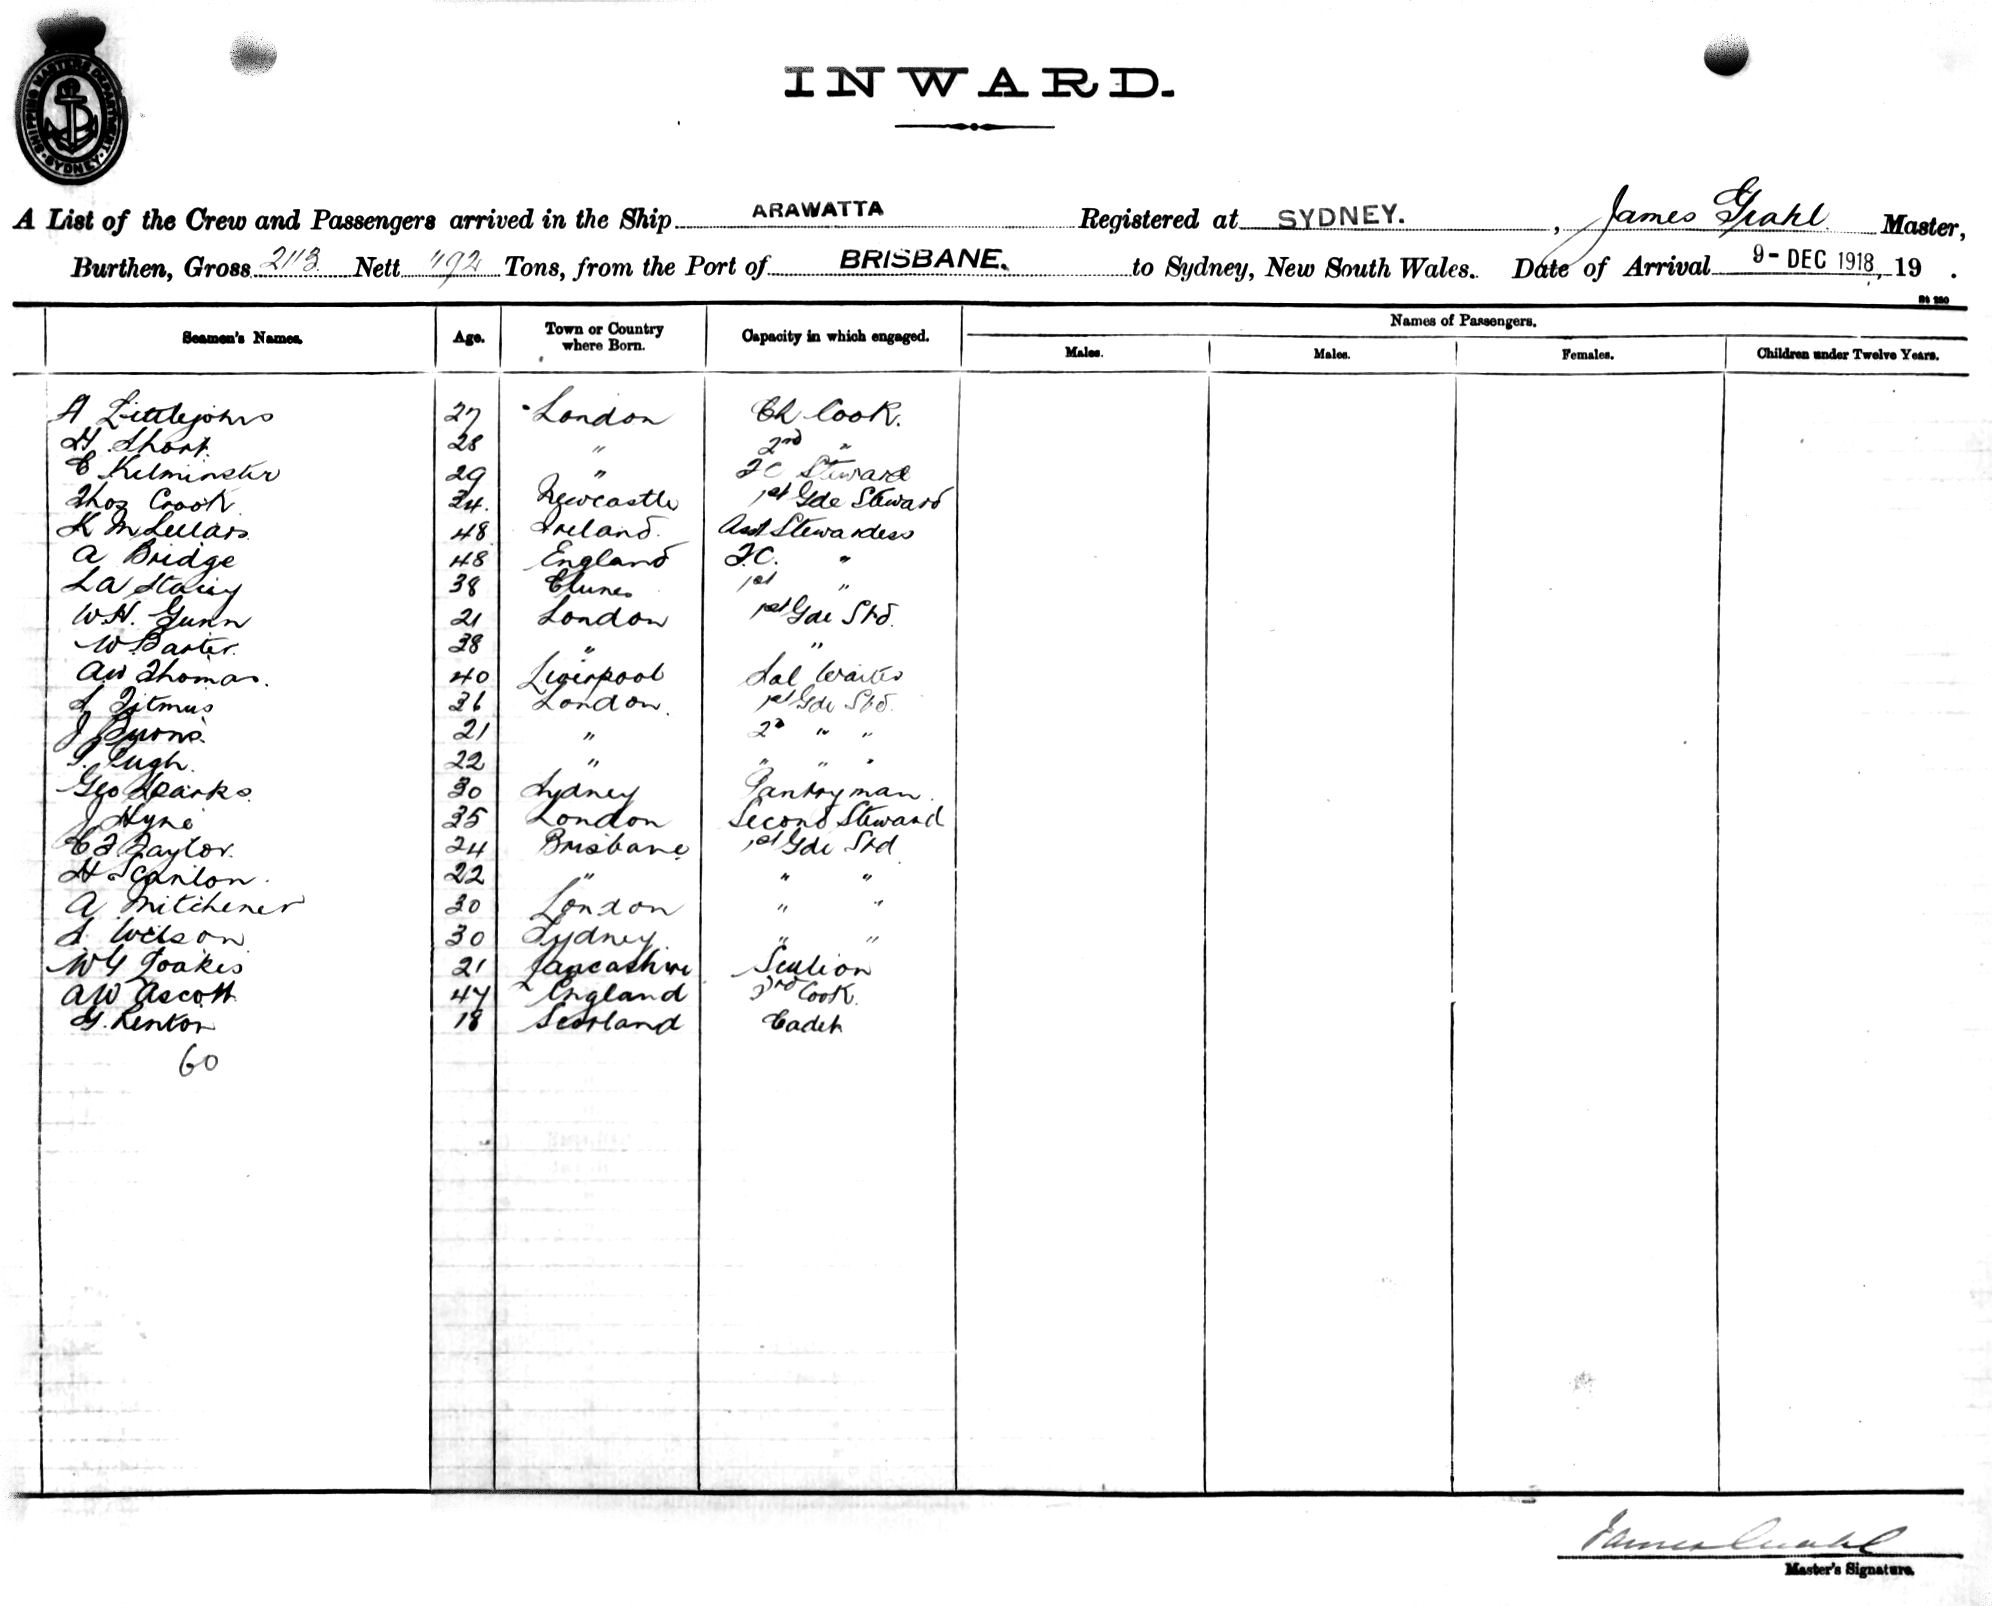 SHIPPING MASTERS DEPARTMENT SYDNEY
INWARD.
A List of the Crew and Passengers arrived in the Ship ARAWATTA Registered at SYDNEY. , James Grahl Master,
Burthen, Gross 2113 Nett 792 Tons, from the Port of BRISBANE. to Sydney, New South Wales. Date of Arrival 9- DEC 1918, 19 .
Names of Passengers.
Seamen's Names. Age. Town or Country where Born. Capacity in which engaged. Males. Males. Females. Children under Twelve Years.
A Littlejohns 27 London Ch Cook.
H. Short. 28 " 2nd "
E Kilminster 29 " F C Steward
Thos Crook 24. Newcastle 1st Gde Steward
K McLellars 48 Ireland. Asst Stewardess
A Bridge 48 England F.C. "
L A Stacey 38 Clunes 1st "
W.H. Gunn 21 London 1st Gde Std.
W. Baxter. 38 " "
A W Thomas. 40 Liverpool Sal Waiter
S Titmus 36 London. 1st Gde Std.
J Burns. 21 " 2d " "
Pugh. 22 " " " "
Geo Sparks. 30 Sydney Pantryman.
J Hyne 35 London Second Steward
C F Taylor. 24 Brisbane 1st Gde Std
H Scanlon. 22 " " "
A Mitchener 30 London " "
S. Wilson 30 Sydney. " "
W G Toakes 21 Lancashire Scullion
A W Ascott 47 England 3rd Cook.
G. Renton 18 Scotland Cadet
60
James Grahl
Master's Signature.